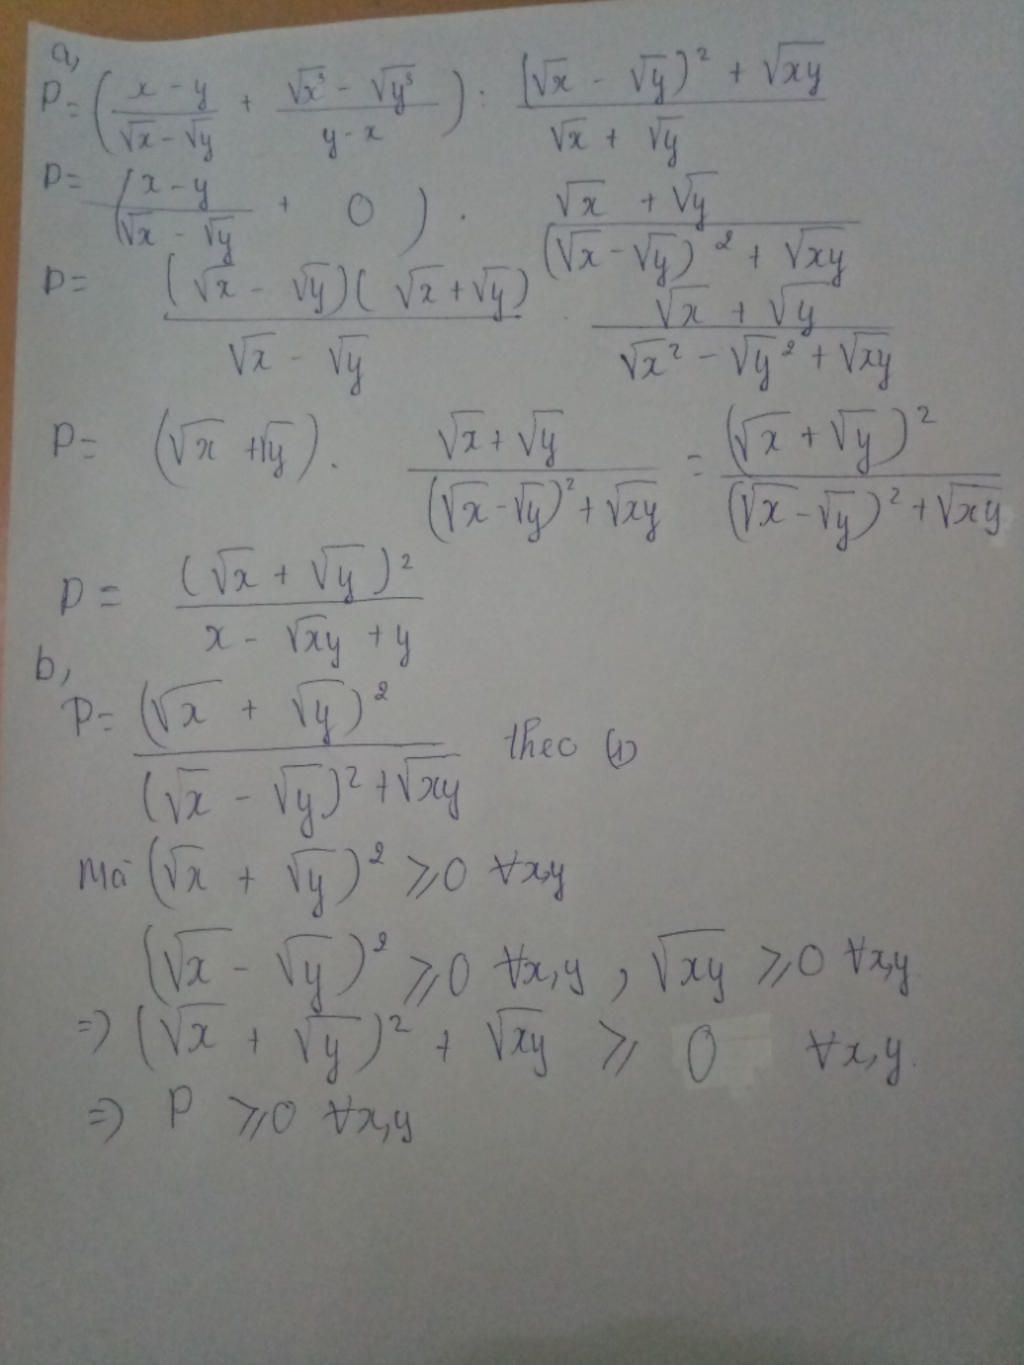 a,
P = ( (x - y)/(√x - √y) + (√x³ - √y³)/(y - x) ) : ((√x - √y)² + √xy)/(√x + √y)
P = ( (x - y)/(√x - √y) + 0 ) . (√x + √y)/((√x - √y)² + √xy)
P = ((√x - √y)(√x + √y))/(√x - √y) . (√x + √y)/(√x² - √y² + √xy)
P = (√x + √y) . (√x + √y)/((√x - √y)² + √xy) = (√x + √y)²/((√x - √y)² + √xy)
P = (√x + √y)²/(x - √xy + y)
b,
P = (√x + √y)²/((√x - √y)² + √xy) theo (1)
Mà (√x + √y)² ⩾ 0 ∀x,y
(√x - √y)² ⩾ 0 ∀x,y , √xy ⩾ 0 ∀x,y
=> (√x + √y)² + √xy ⩾ 0 ∀x,y.
=> P ⩾ 0 ∀x,y